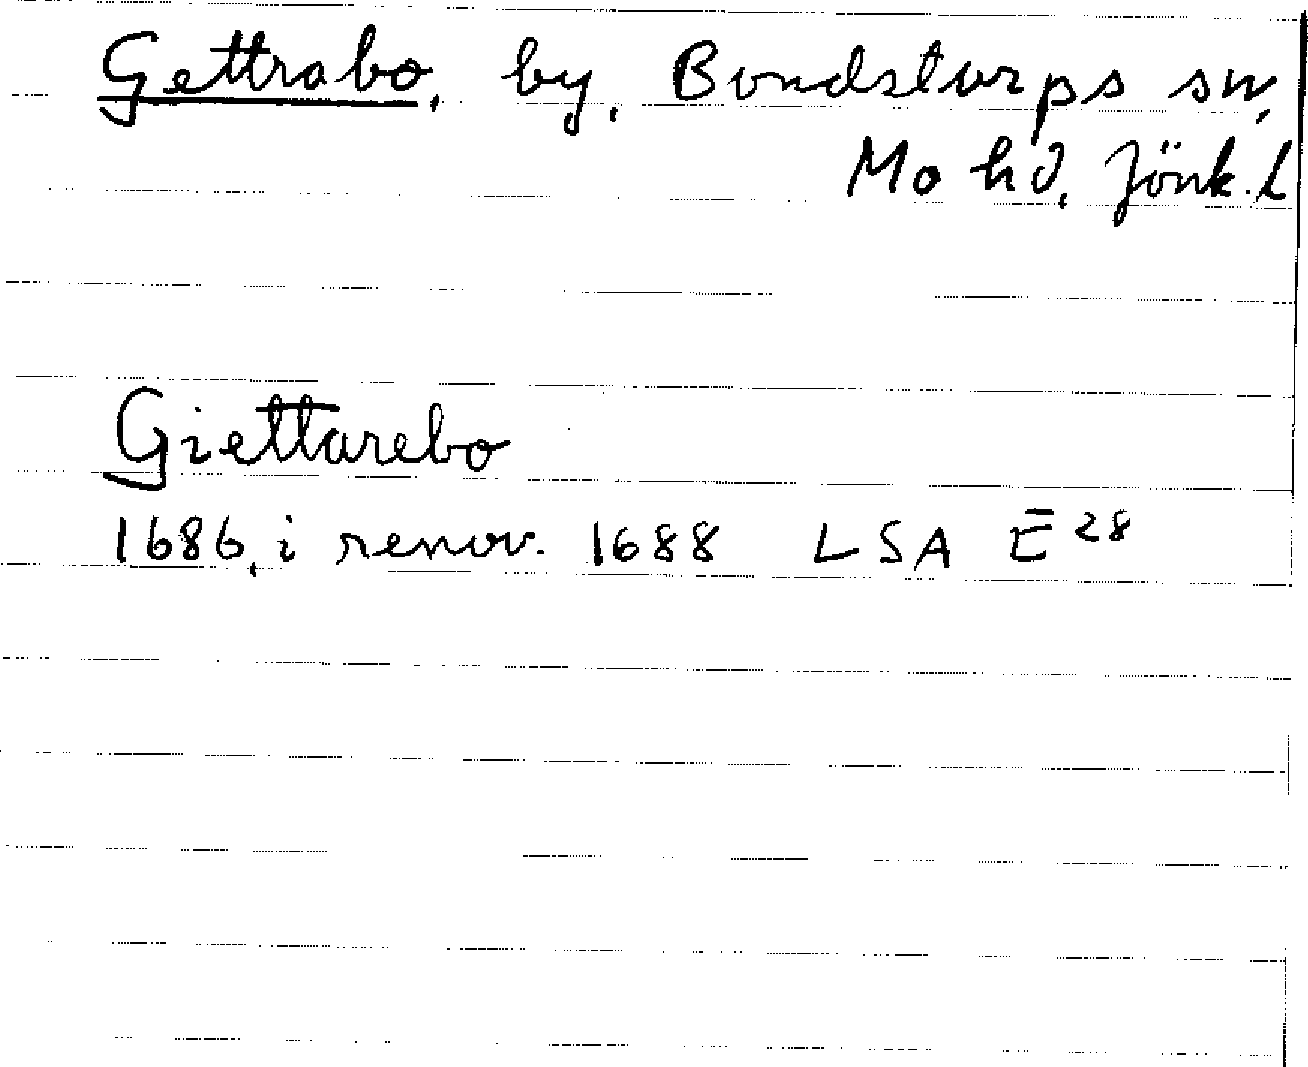 Gettrabo, by, Bondstorps sn,
Mo hd, Jönk. l
Giettarebo
1686, i renov. 1688 LSA E 28